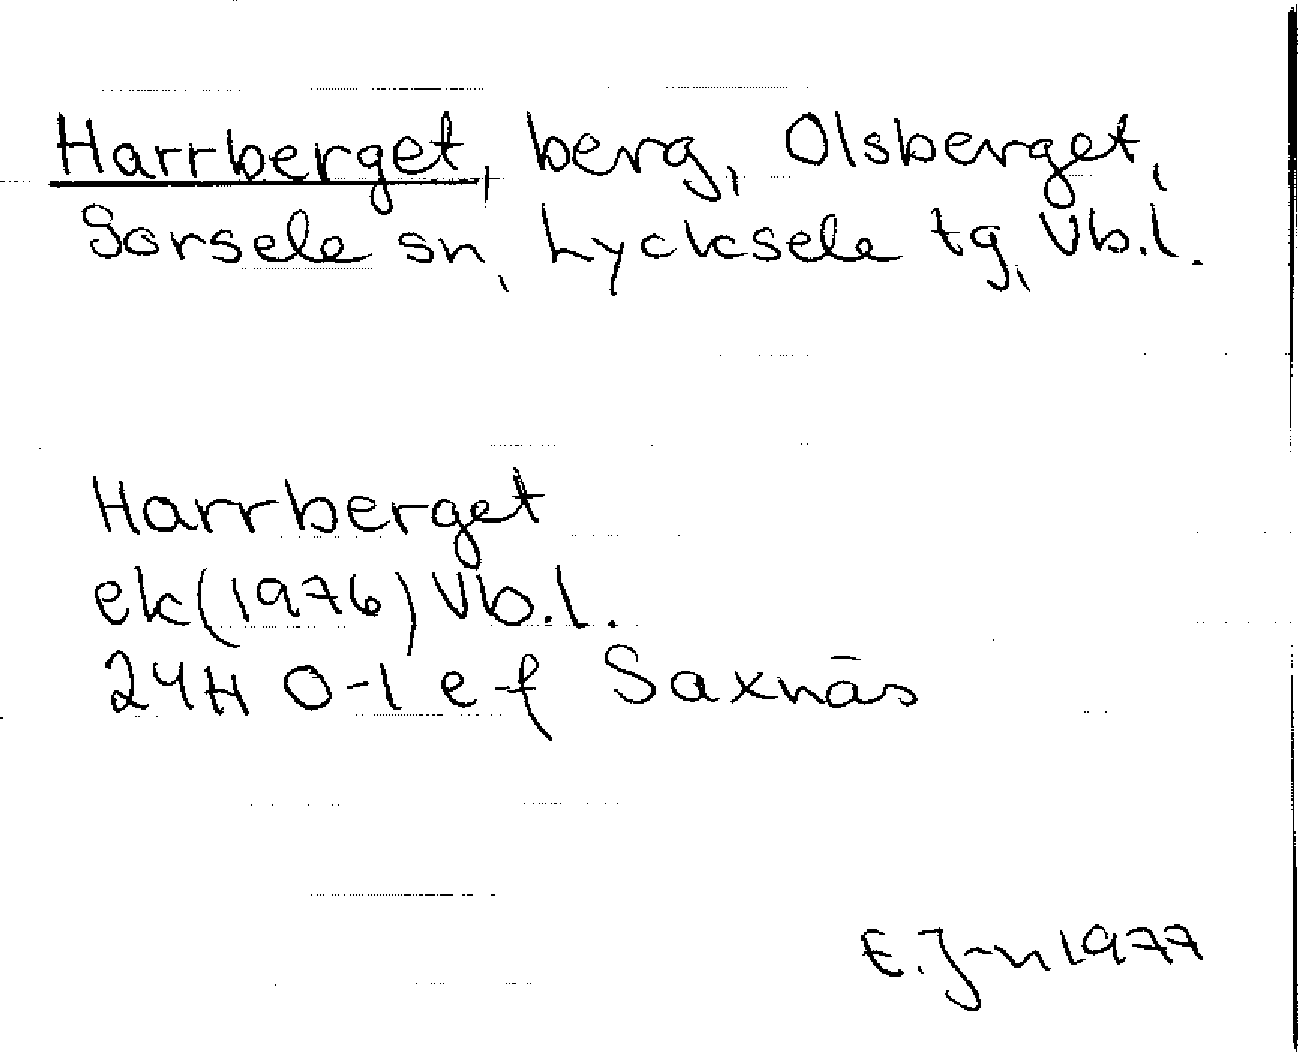 Harrberget, berg, Olsberget,
Sorsele sn, Lycksele tg, Vb.l.
Harrberget
ek(1976) Vb.l.
24H 0-1 e-f Saxnäs
E. J-n 1977